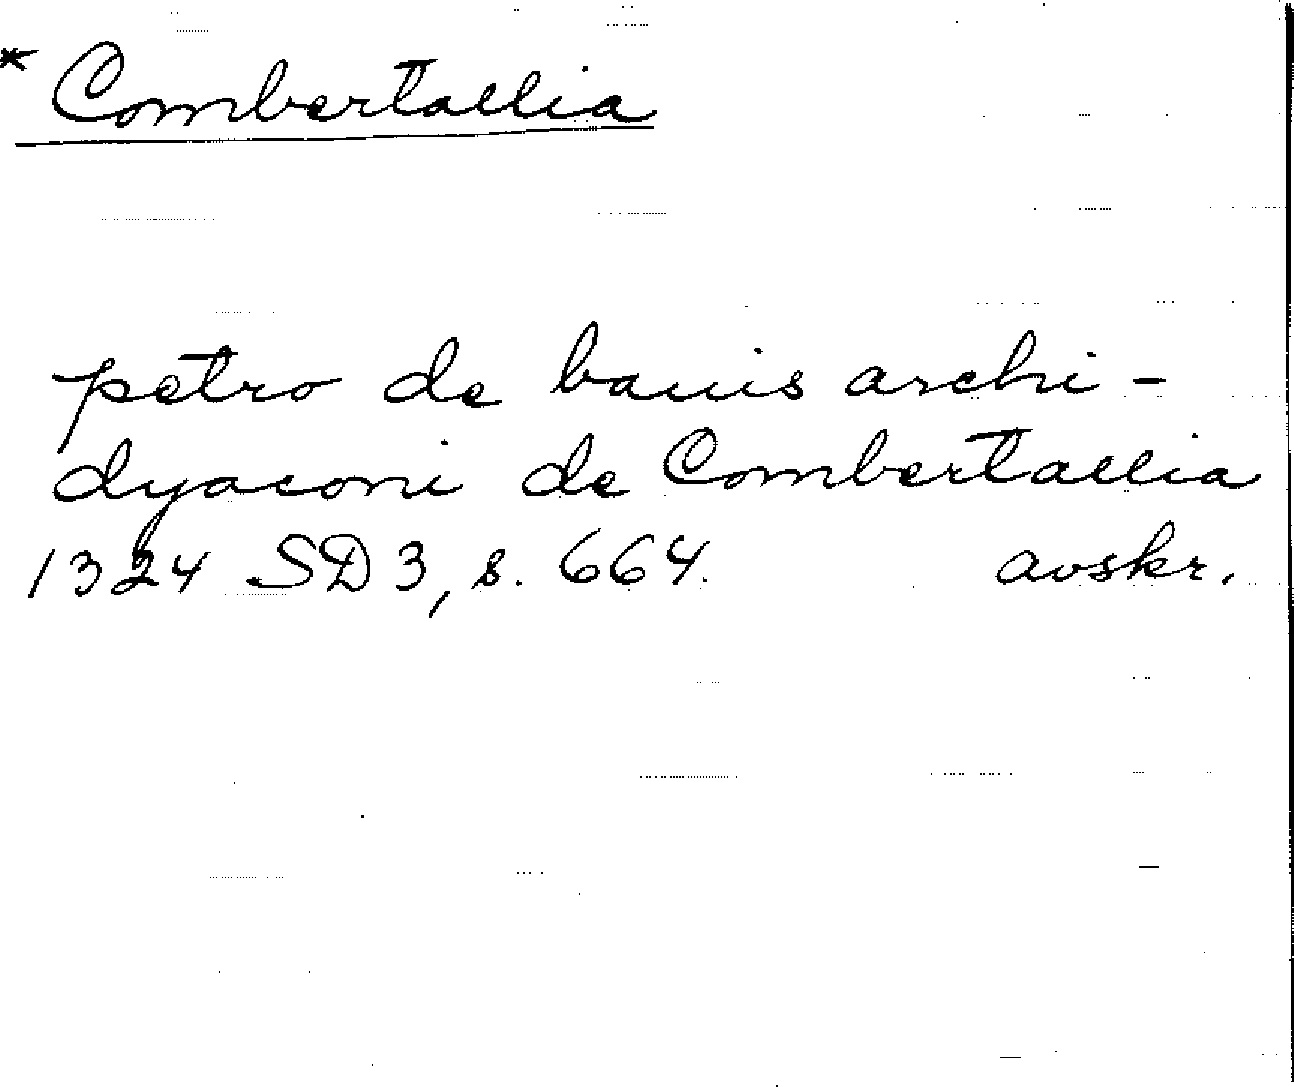 * Combertallia
petro de bauis archi-
dyaconi de Combertallia
1324 SD3, s. 664. avskr.